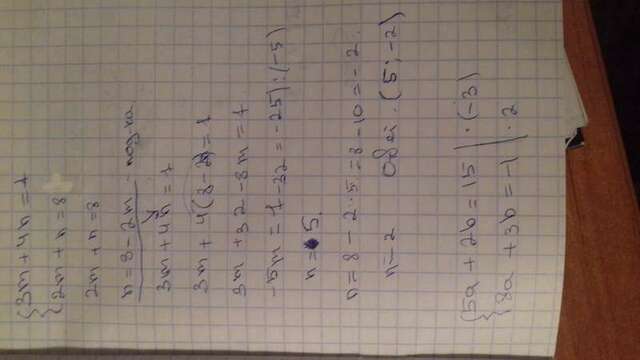 {3m + 4n = 7
{2m + n = 8
2m + n = 8
n = 8 - 2m
3m + 4n = 7
3m + 4(8 - 2m) = 7
3m + 32 - 8m = 7
-5m = 7 - 32 = -25) : (-5)
m = 5.
n = 8 - 2 · 5 = 8 - 10 = -2.
n = -2 Ответ. (5; -2)
{5a + 2b = 15 | · (-3)
{8a + 3b = -1 | · 2